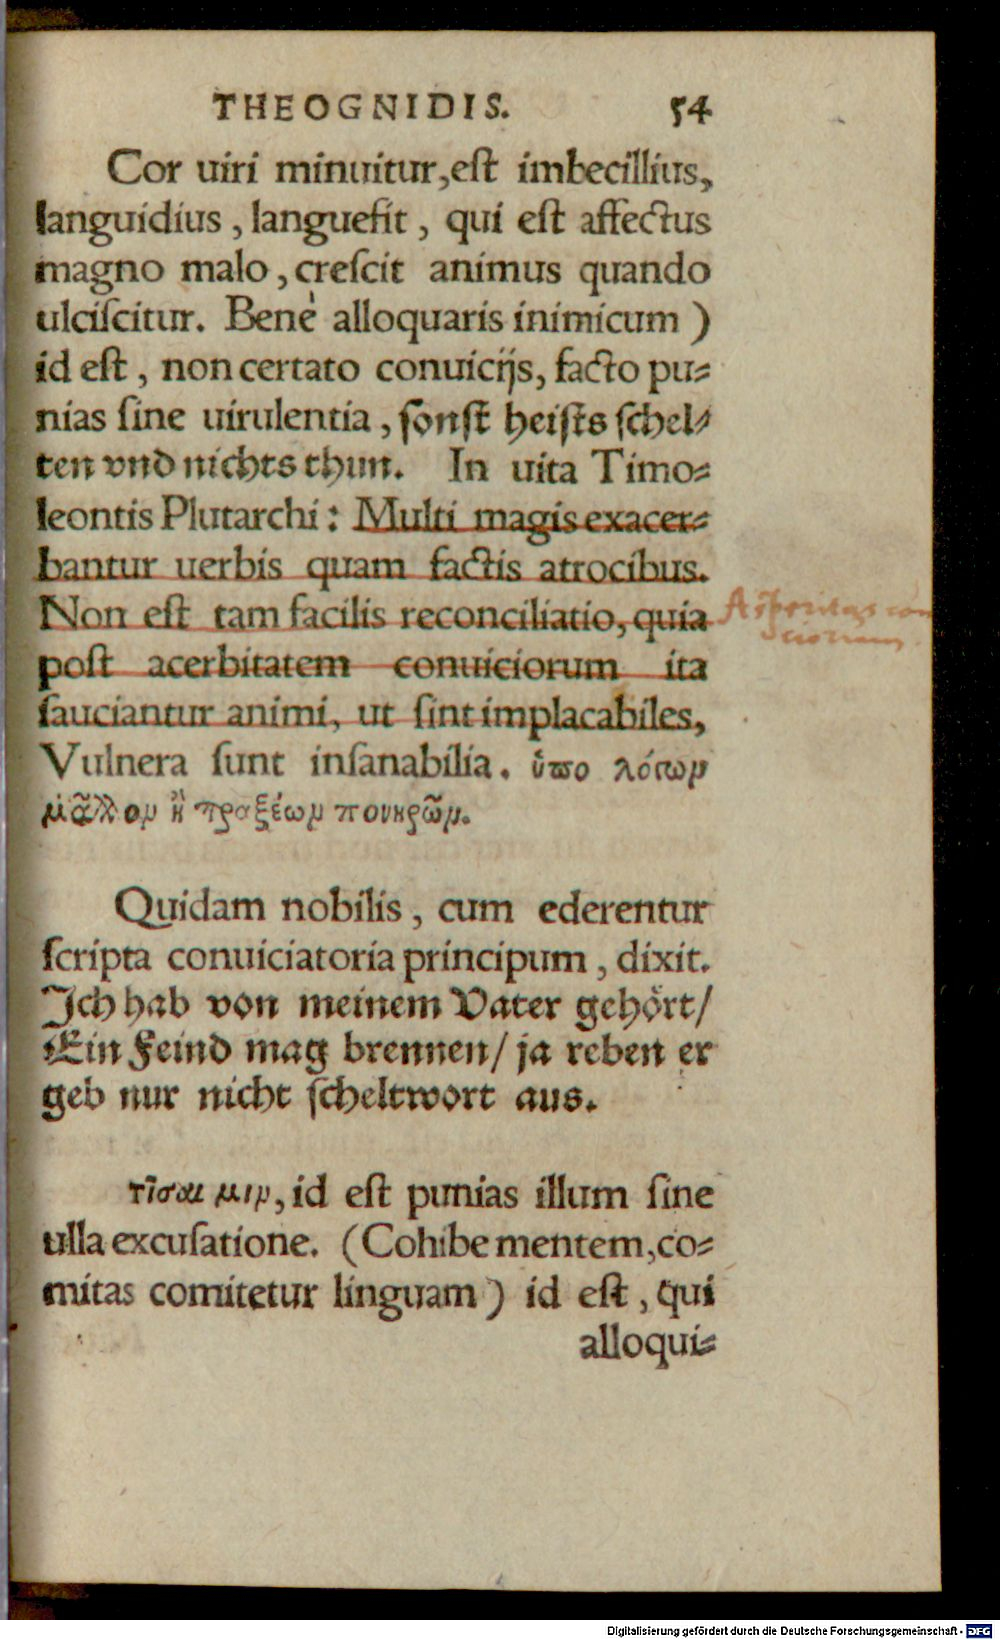 THEOGNIDIS. 54
Cor uiri minuitur, est imbecillius,
languidius, languefit, qui est affectus
magno malo, crescit animus quando
ulciscitur. Benè alloquaris inimicum )
id est, non certato conuicijs, facto pu⸗
nias sine uirulentia, sonst heists schel⸗
ten vnd nichts thun. In uita Timo⸗
leontis Plutarchi: Multi magis exacer⸗
bantur uerbis quam factis atrocibus.
Non est tam facilis reconciliatio, quia
post acerbitatem conuiciorum ita
sauciantur animi, ut sint implacabiles,
Vulnera sunt insanabilia. ὑπο λόγωμ
μᾶλλομ ἢ πραξέωμ πονηρῶμ.
Asperitas con
uiciorum.
Quidam nobilis, cum ederentur
scripta conuiciatoria principum, dixit.
Ich hab von meinem Vater gehört/
Ein Feind mag brennen/ ja reben er
geb nur nicht scheltwort aus.
τῖσαι μιμ, id est punias illum sine
ulla excusatione. (Cohibe mentem, co⸗
mitas comitetur linguam) id est, qui
alloqui⸗
Digitalisierung gefördert durch die Deutsche Forschungsgemeinschaft - DFG